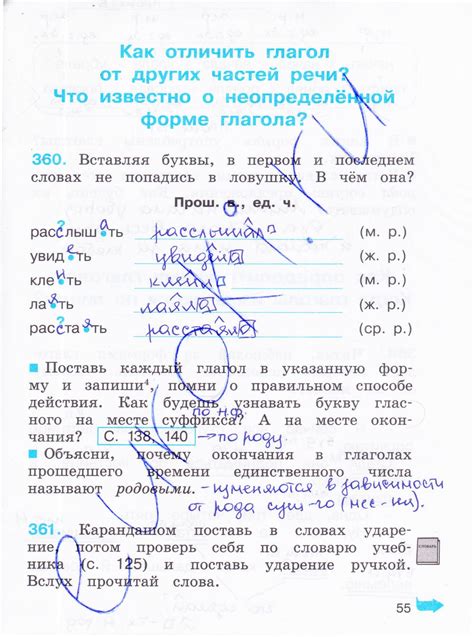 Как отличить глагол
от других частей речи?
Что известно о неопределённой
форме глагола?
360. Вставляя буквы, в первом и последнем
словах не попадись в ловушку. В чём она?
Прош. в., ед. ч.
расслыш а ть расслышал (м. р.)
увид е ть увидела (ж. р.)
кле и ть клеил (м. р.)
ла я ть лаяла (ж. р.)
расста я ть расстаяло (ср. р.)
Поставь каждый глагол в указанную фор-
му и запиши⁴, помни о правильном способе
действия. Как будешь узнавать букву глас-
ного на месте суффикса? А на месте окон-
по н.ф.
чания? С. 138, 140 → по роду
Объясни, почему окончания в глаголах
прошедшего времени единственного числа
называют родовыми. - изменяются в зависимости
от рода сущ-го (мес-ния).
361. Карандашом поставь в словах ударе-
ние, потом проверь себя по словарю учеб-
ника (с. 125) и поставь ударение ручкой.
Вслух прочитай слова.
СЛОВАРЬ
55